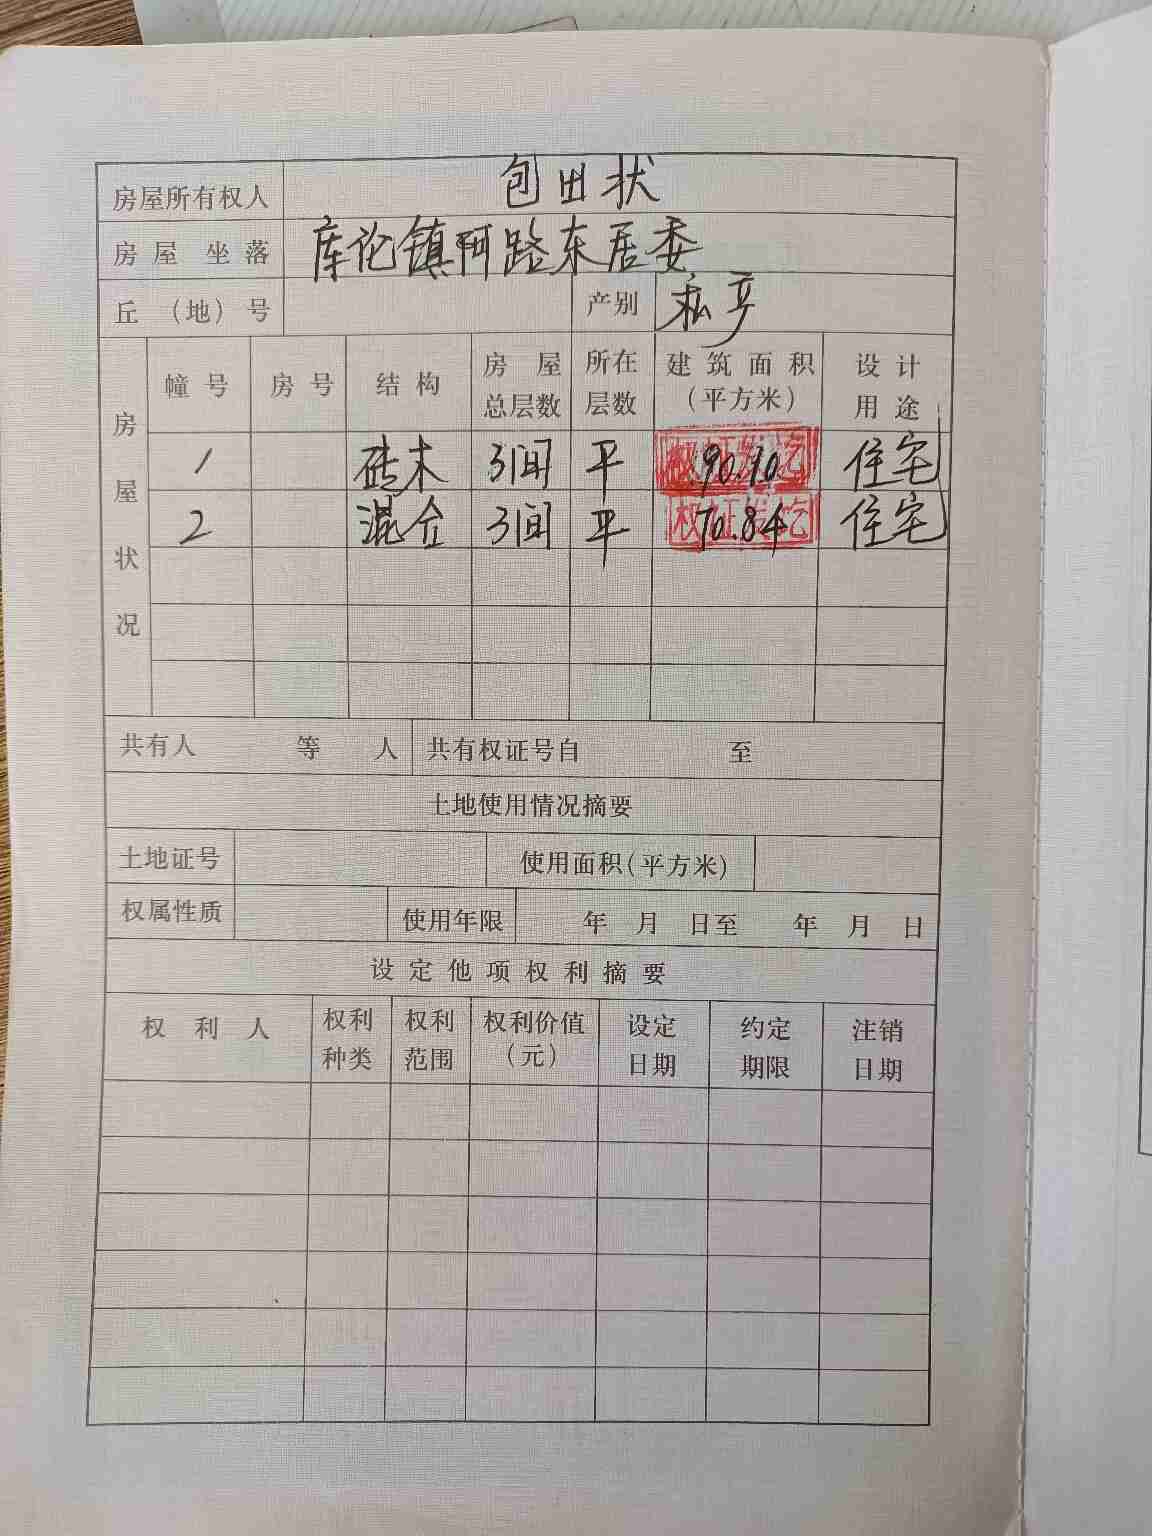 房屋所有权人 包田状
房屋坐落 库伦镇阿路东居委
丘(地)号 产别 私产
房屋状况 幢号 房号 结构 房屋总层数 所在层数 建筑面积(平方米) 设计用途
1 砖木 3间 平 90.90 住宅
2 混合 3间 平 70.84 住宅
共有人 等 人 共有权证号自 至
土地使用情况摘要
土地证号 使用面积(平方米)
权属性质 使用年限 年 月 日至 年 月 日
设定他项权利摘要
权利人 权利种类 权利范围 权利价值(元) 设定日期 约定期限 注销日期